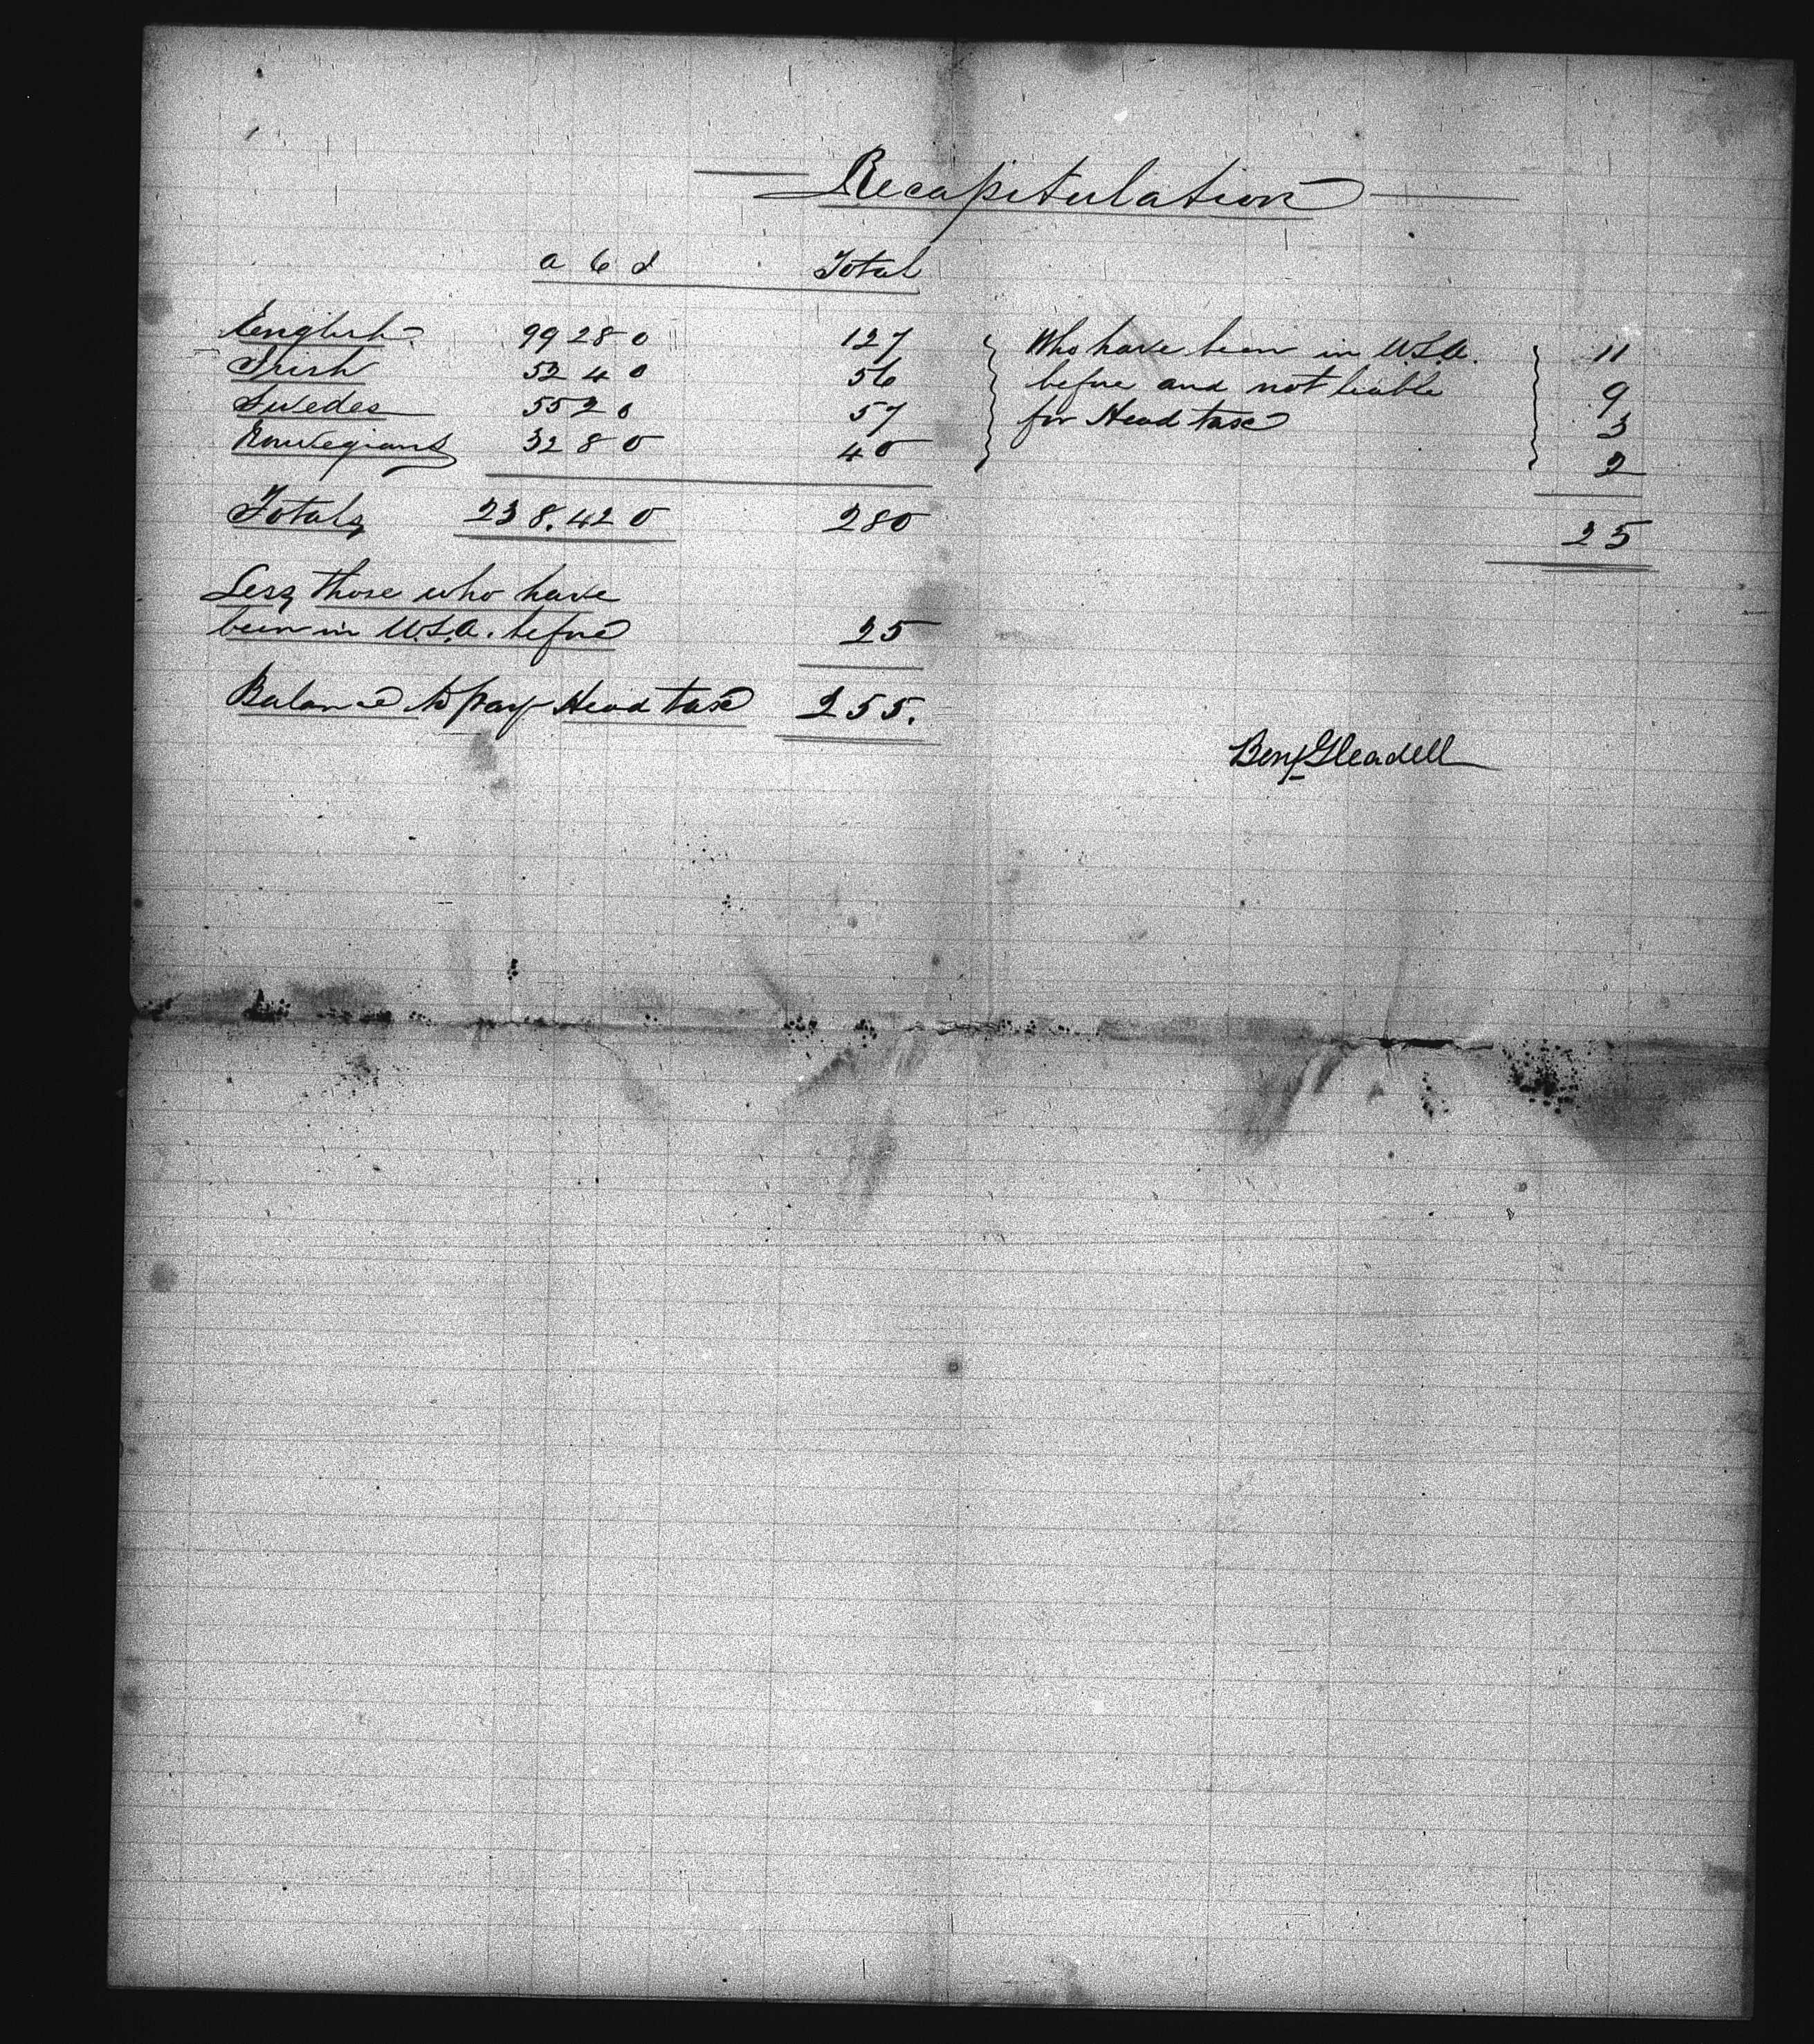 Recapitulation
a b d Total
English 99 28 0 127
Irish 52 4 0 56
Swedes 55 2 0 57
Norwegians 32 8 0 40
Totals 238. 42 0 280
Who have been in U.S.A. 11
before and not liable 9
for Head tax 3
2
25
Less those who have
been in U.S.A. before 25
Balance to pay Head tax 255.
Benj Gleadell